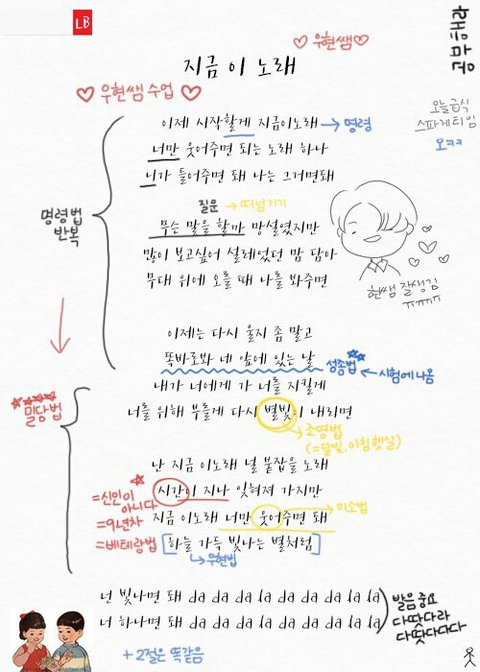 LB
♡ 우현쌤 ♡
공부해라
지금 이 노래
♡ 우현쌤 수업 ♡
오늘급식
스파게티임
오ㅋㅋ
이제 시작할게 지금이노래 → 명령
너만 웃어주면 되는 노래 하나
니가 들어주면 돼 나는 그거면돼
명령법
반복
질문 → 떠넘기기
무슨 말을 할까 망설였지만
많이 보고싶어 설레었던 맘 담아
무대 위에 오를 때 나를 봐주면
현쌤 잘생김
ㅠㅠㅠㅠ
이제는 다시 울지 좀 말고
똑바로봐 네 앞에 있는 날 성종법 ← 시험에 나옴
내가 너에게 가 너를 지킬게
밀당법
너를 위해 부를게 다시 별빛이 내리면
조명법
(=달빛.아침햇살)
난 지금 이노래 널 붙잡을 노래
시간이 지나 잊혀져 가지만
=신인이
아니다
=9년차
=베테랑법
미소법
지금 이노래 너만 웃어주면 돼
[하늘 가득 빛나는 별처럼]
우현법
넌 빛나면 돼 da da da da da da da la la
너 하나면 돼 da da da da da da da la la
발음중요
다땃다라
다땃다다다
+2절은 똑같음